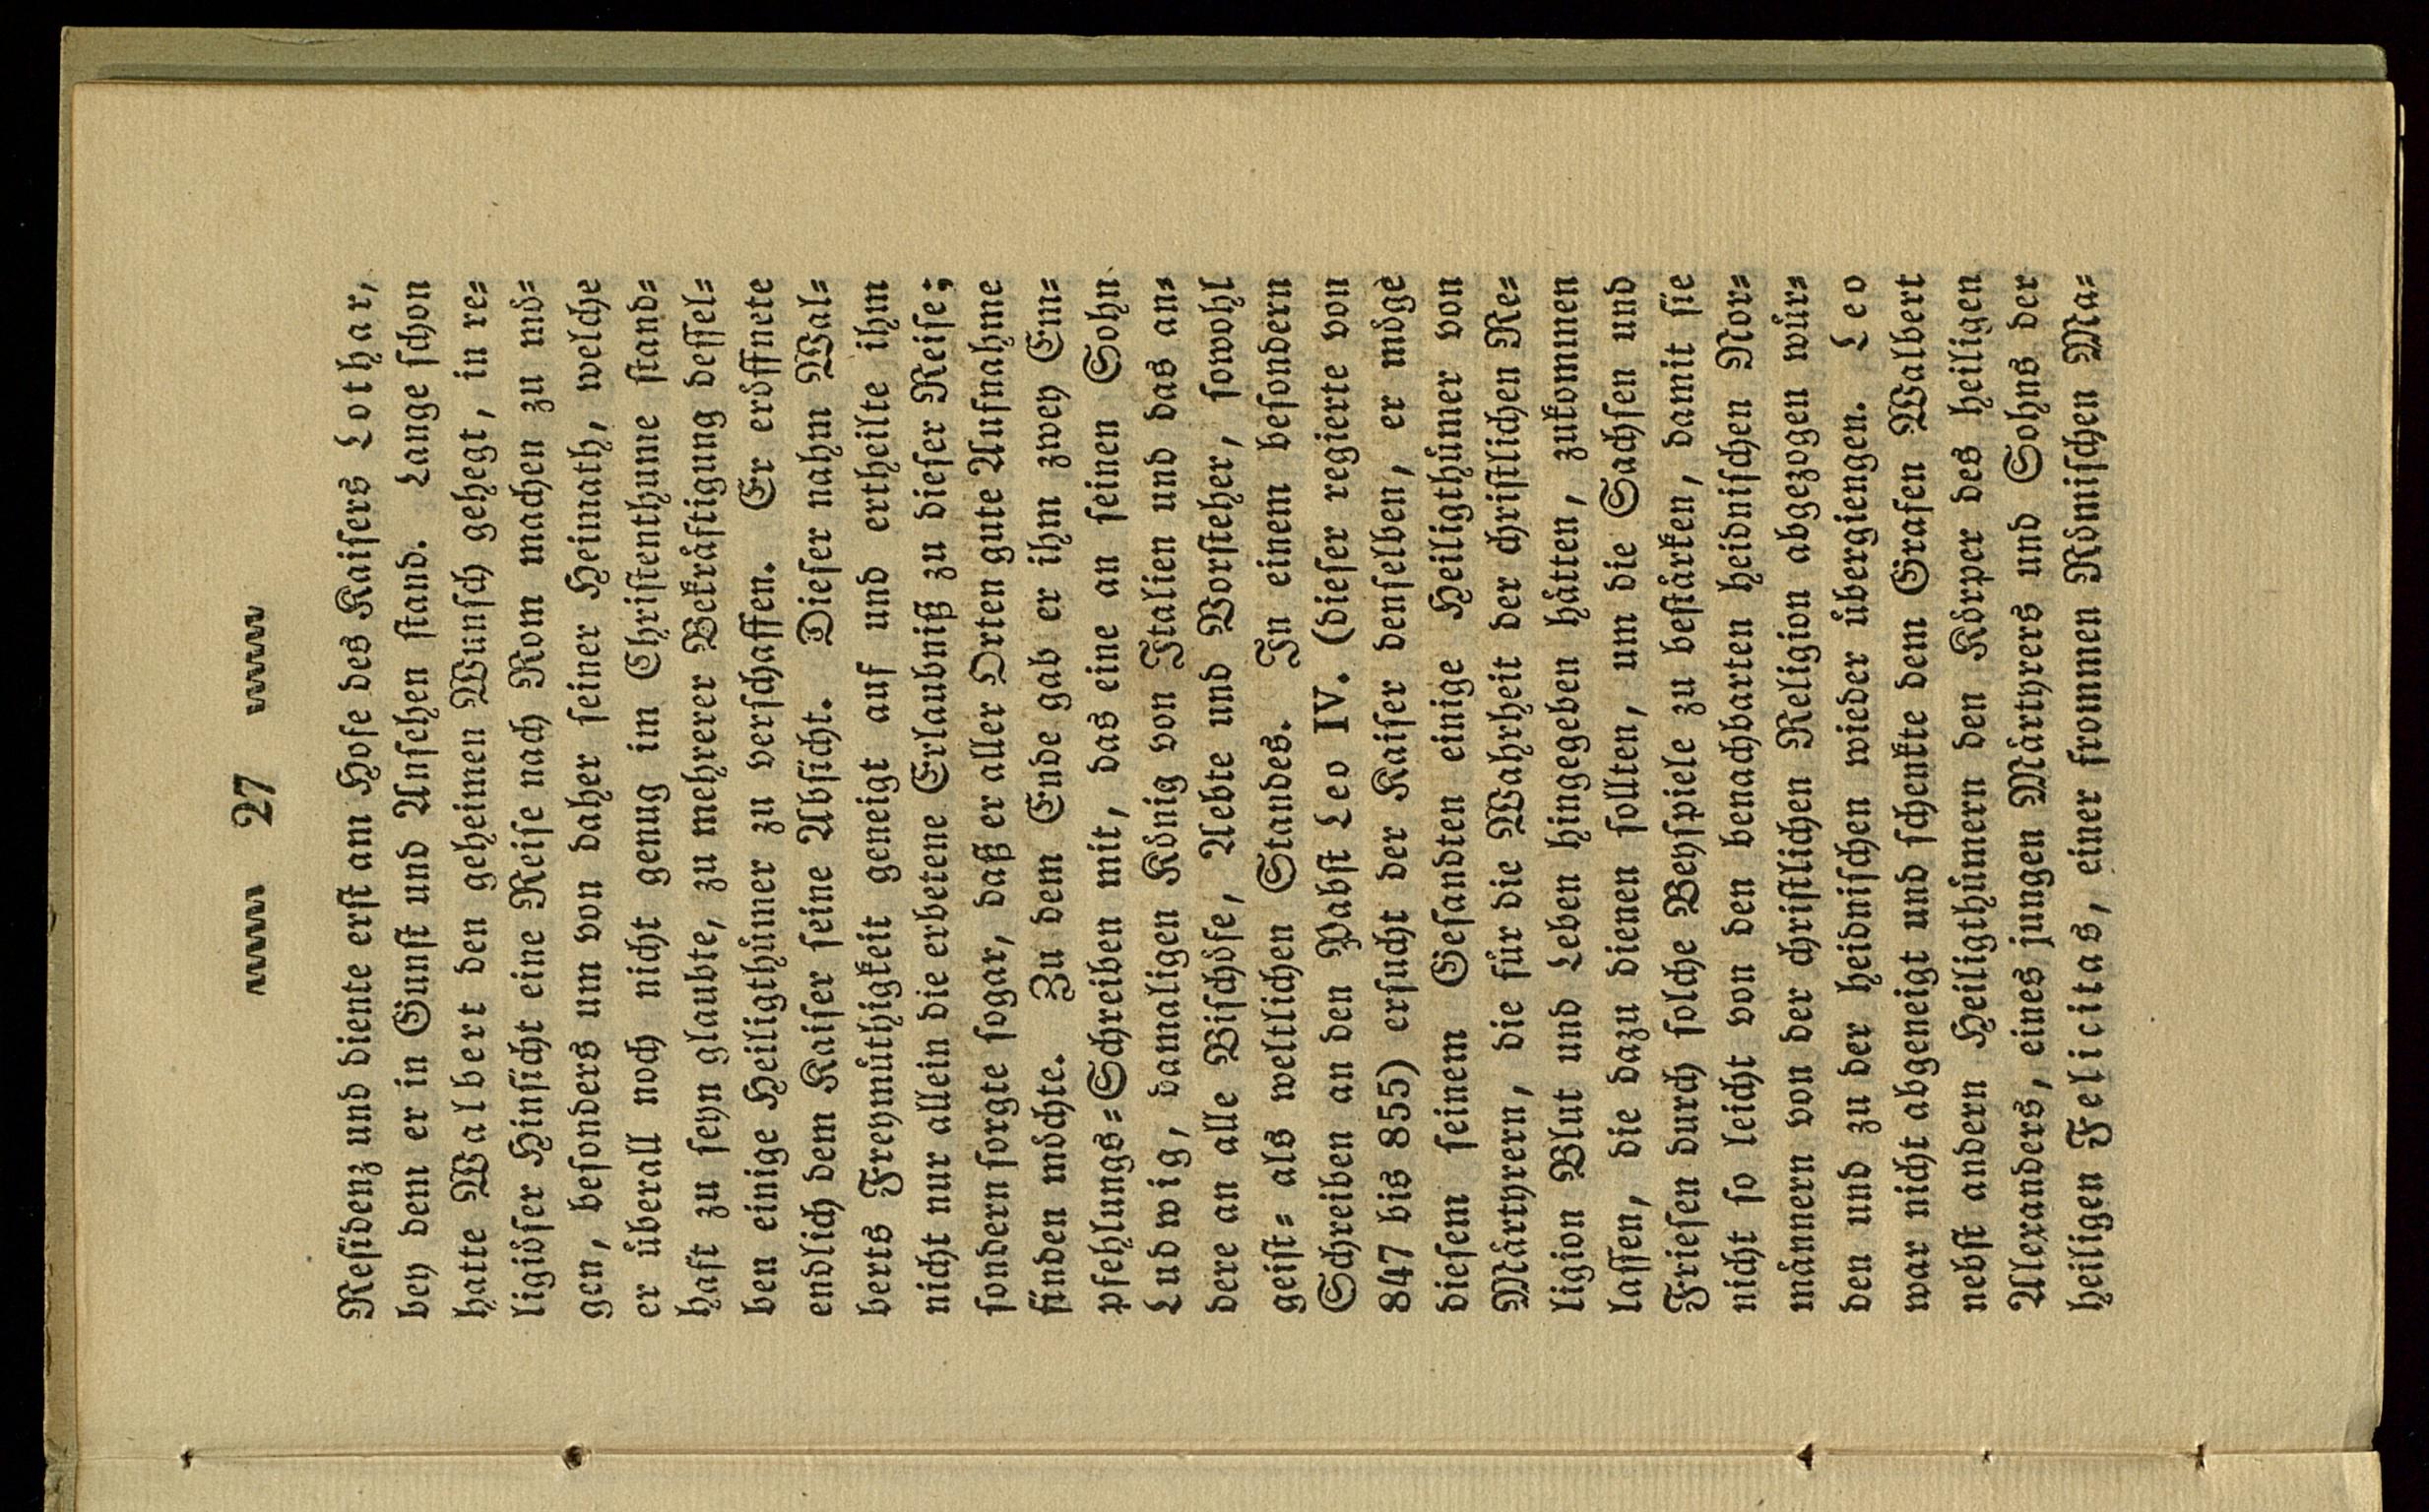 27
Residenz und diente erst am Hofe des Kaisers Lothar,
bey dem er in Gunst und Ansehen stand. Lange schon
hatte Walbert den geheimen Wunsch gehegt, in re=
ligiöser Hinsicht eine Reise nach Rom machen zu mö=
gen, besonders um von daher seiner Heimath, welche
er überall noch nicht genug im Christenthume stand=
haft zu seyn glaubte, zu mehrerer Bekräftigung dessel=
ben einige Heiligthümer zu verschaffen. Er eröffnete
endlich dem Kaiser seine Absicht. Dieser nahm Wal=
berts Freymüthigkeit geneigt auf und ertheilte ihm
nicht nur allein die erbetene Erlaubniß zu dieser Reise;
sondern sorgte sogar, daß er aller Orten gute Aufnahme
finden möchte. Zu dem Ende gab er ihm zwey Em=
pfehlungs=Schreiben mit, das eine an seinen Sohn
Ludwig, damaligen König von Italien und das an=
dere an alle Bischöfe, Aebte und Vorsteher, sowohl
geist= als weltlichen Standes. In einem besondern
Schreiben an den Pabst Leo IV. (dieser regierte von
847 bis 855) ersucht der Kaiser denselben, er möge
diesem seinem Gesandten einige Heiligthümer von
Märtyrern, die für die Wahrheit der christlichen Re=
ligion Blut und Leben hingegeben hätten, zukommen
lassen, die dazu dienen sollten, um die Sachsen und
Friesen durch solche Beyspiele zu bestärken, damit sie
nicht so leicht von den benachbarten heidnischen Nor=
männern von der christlichen Religion abgezogen wür=
den und zu der heidnischen wieder übergiengen. Leo
war nicht abgeneigt und schenkte dem Grafen Walbert
nebst andern Heiligthümern den Körper des heiligen
Alexanders, eines jungen Märtyrers und Sohns der
heiligen Felicitas, einer frommen Römischen Ma=